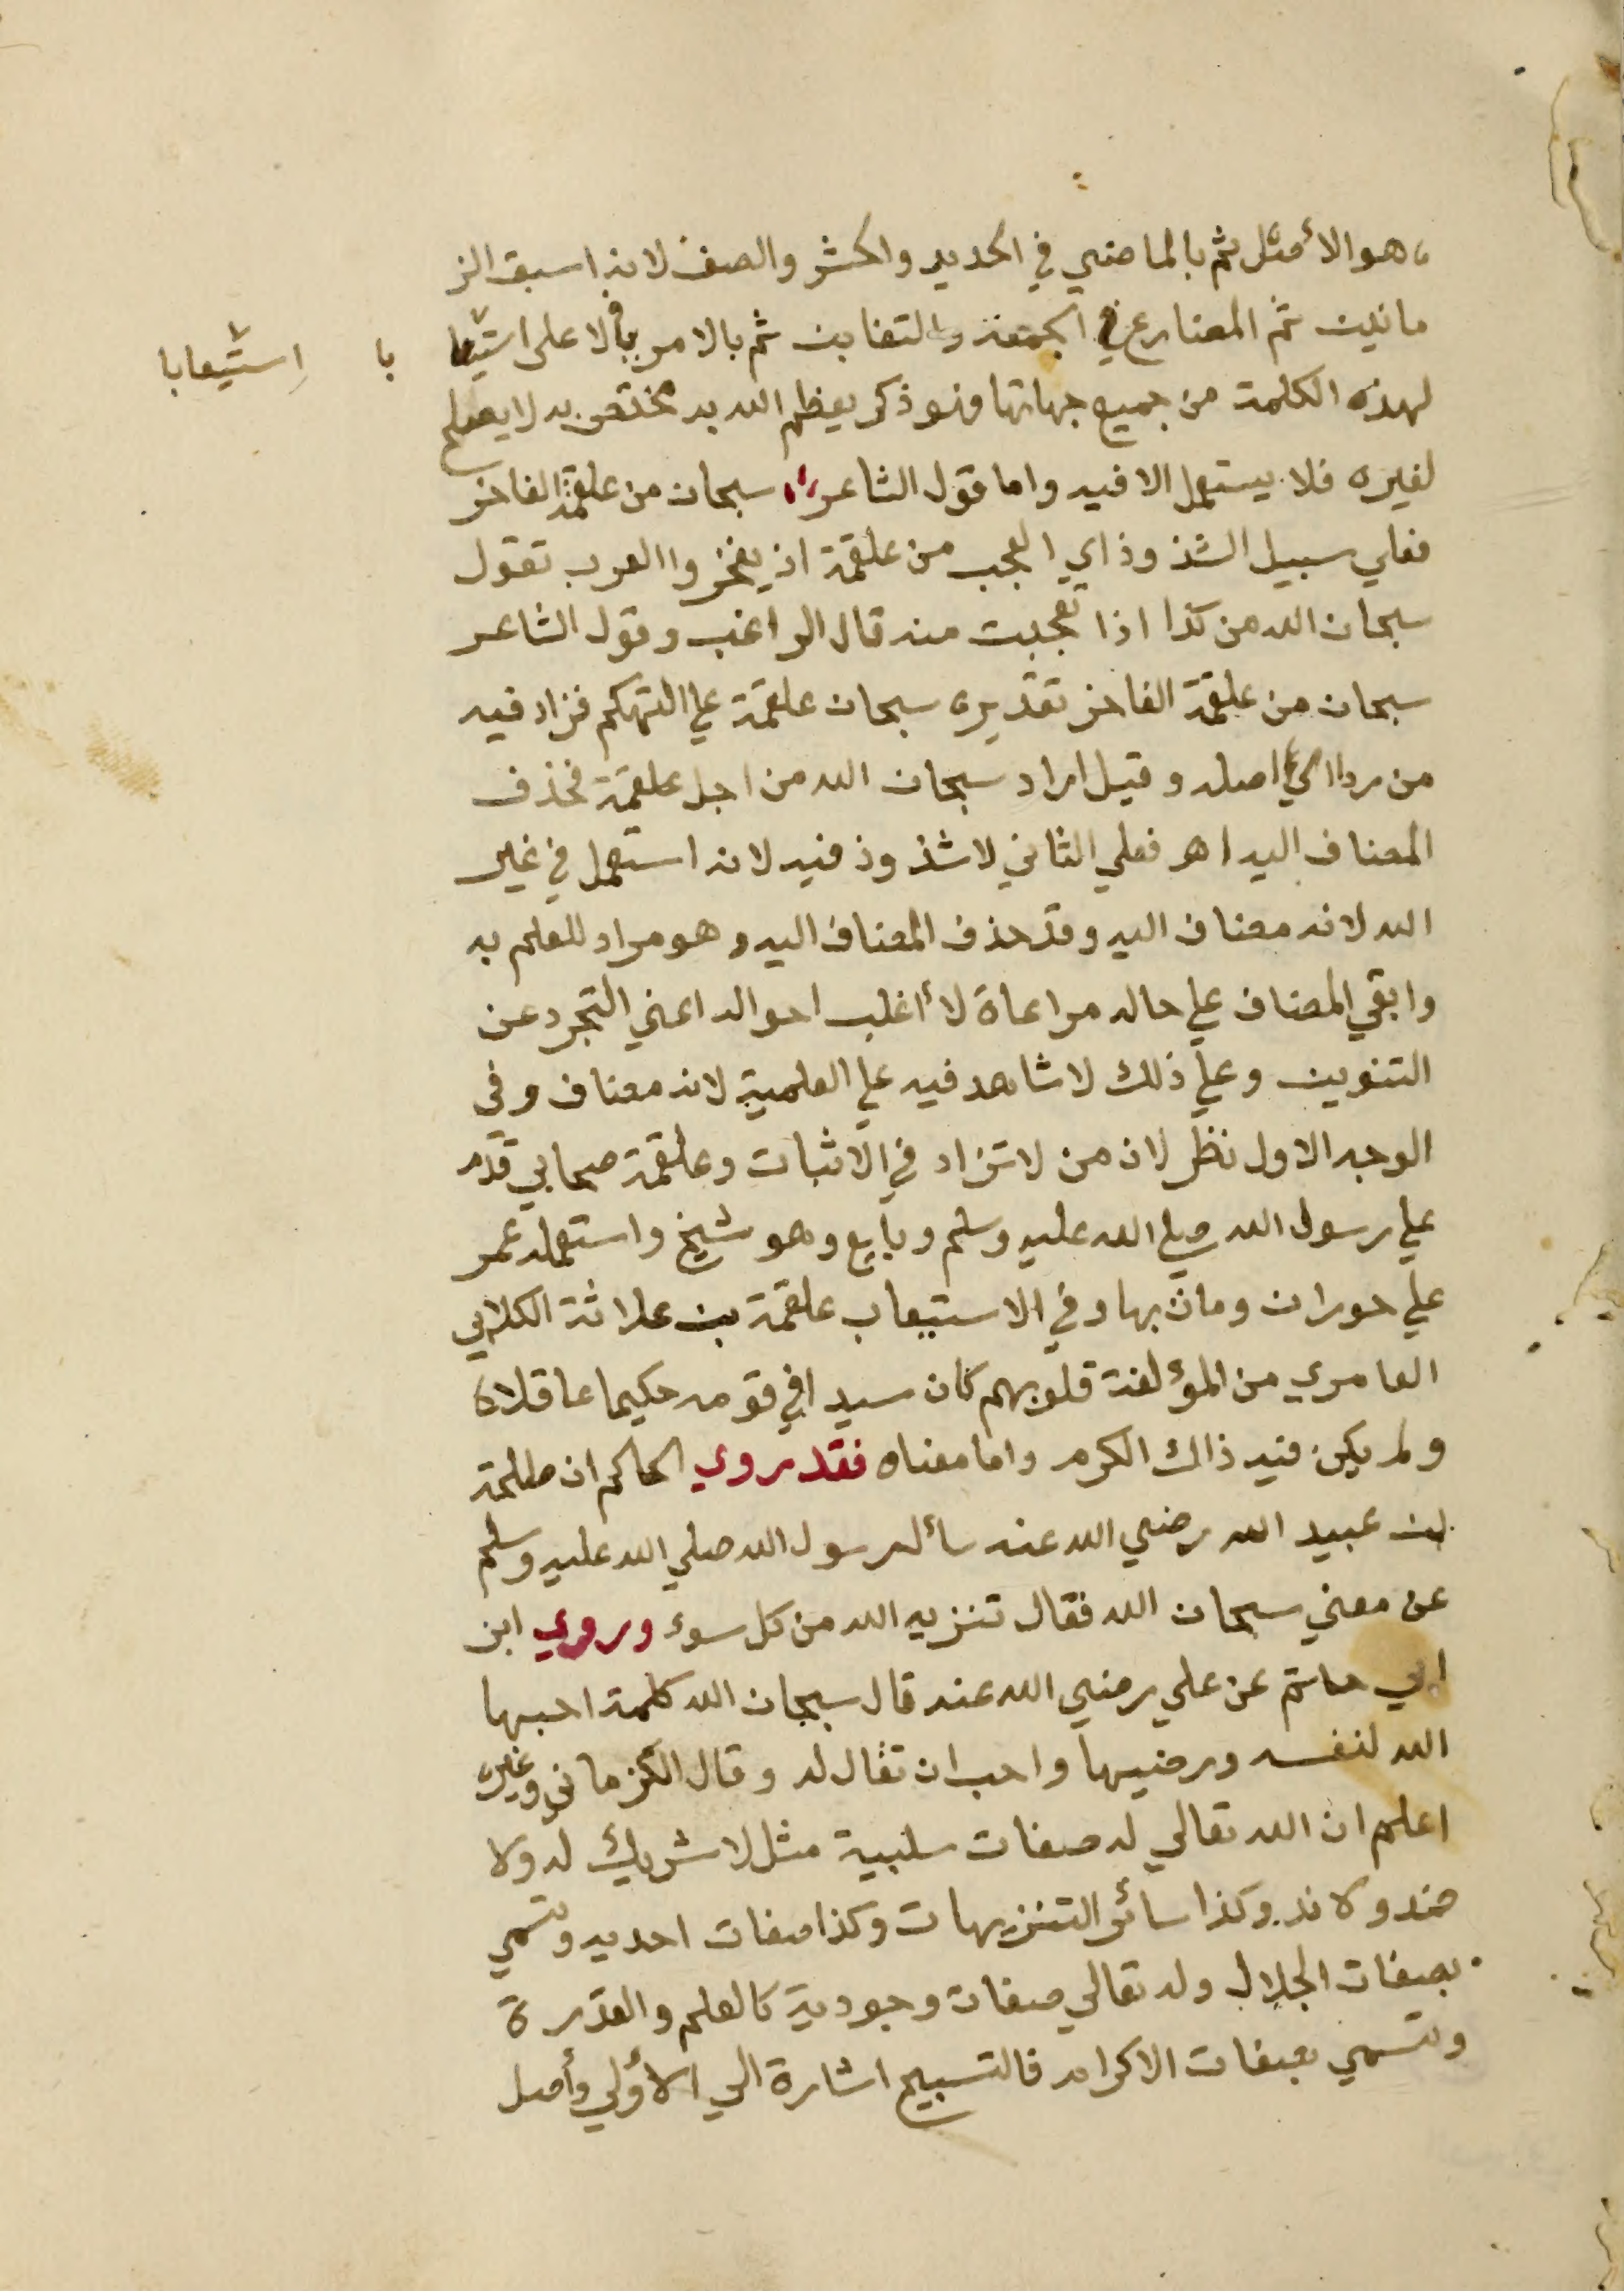 هو الأمثل ثم بالماضي في الحديد والحشر والصف لانه اسبق الز
مانين ثم المضارع في الجمعة والتغابن ثم بالامر في الاعلى استيعا با
استيعابا
لهذه الكلمة من جميع جهاتها فهو ذكر يعظم الله به مختص به لا يصلح
لغيره فلا يستعمل الا فيه واما قول الشاعر سبحان من علقمة الفاخر
فعلي سبيل الشذوذ اي العجب من علقمة اذ يفخر والعرب تقول
سبحان الله من كذا اذا تعجبت منه قال الراغب وقول الشاعر
سبحان من علقمة الفاخر تقديره سبحان علقمة علي التهكم فزاد فيه
من ردا الي اصله وقيل اراد سبحان الله من اجل علقمة فحذف
المضاف اليه اهـ فعلي الثاني لا شذوذ فيه لانه استعمل في غير
الله لانه مضاف اليه وقد حذف المضاف اليه وهو مراد للعلم به
وابقي المضاف علي حاله مراعاة لأغلب احواله اعني التجرد عن
التنوين وعلي ذلك لا شاهد فيه علي العلمية لانه مضاف وفي
الوجه الاول نظر لان من لا تزاد في الاثبات وعلقمة صحابي قدم
علي رسول الله صلي الله عليه وسلم وبايع وهو شيخ واستعمله عمر
علي حوران ومات بها وفي الاستيعاب علقمة بن علاثة الكلابي
العامري من المؤلفة قلوبهم كان سيدا في قومه حكيما عاقلا
ولم يكن فيه ذاك الكرم واما معناه فقد روي الحاكم ان طلحة
بن عبيد الله رضي الله عنه سأل رسول الله صلي الله عليه وسلم
عن معني سبحان الله فقال تنزيه الله من كل سوء وروي ابن
ابي حاتم عن علي رضي الله عنه قال سبحان الله كلمة احبها
الله لنفسه ورضيها واحب ان تقال له وقال الكرماني وغيره
اعلم ان الله تعالي له صفات سلبية مثل لا شريك له ولا
ضد ولا ند وكذا سائر التنزيهات وكذا صفات احديه وتسمي
بصفات الجلال وله تعالي صفات وجودية كالعلم والقدرة
وتسمي بصفات الاكرام فالتسبيح اشارة الي الأولي وأصل